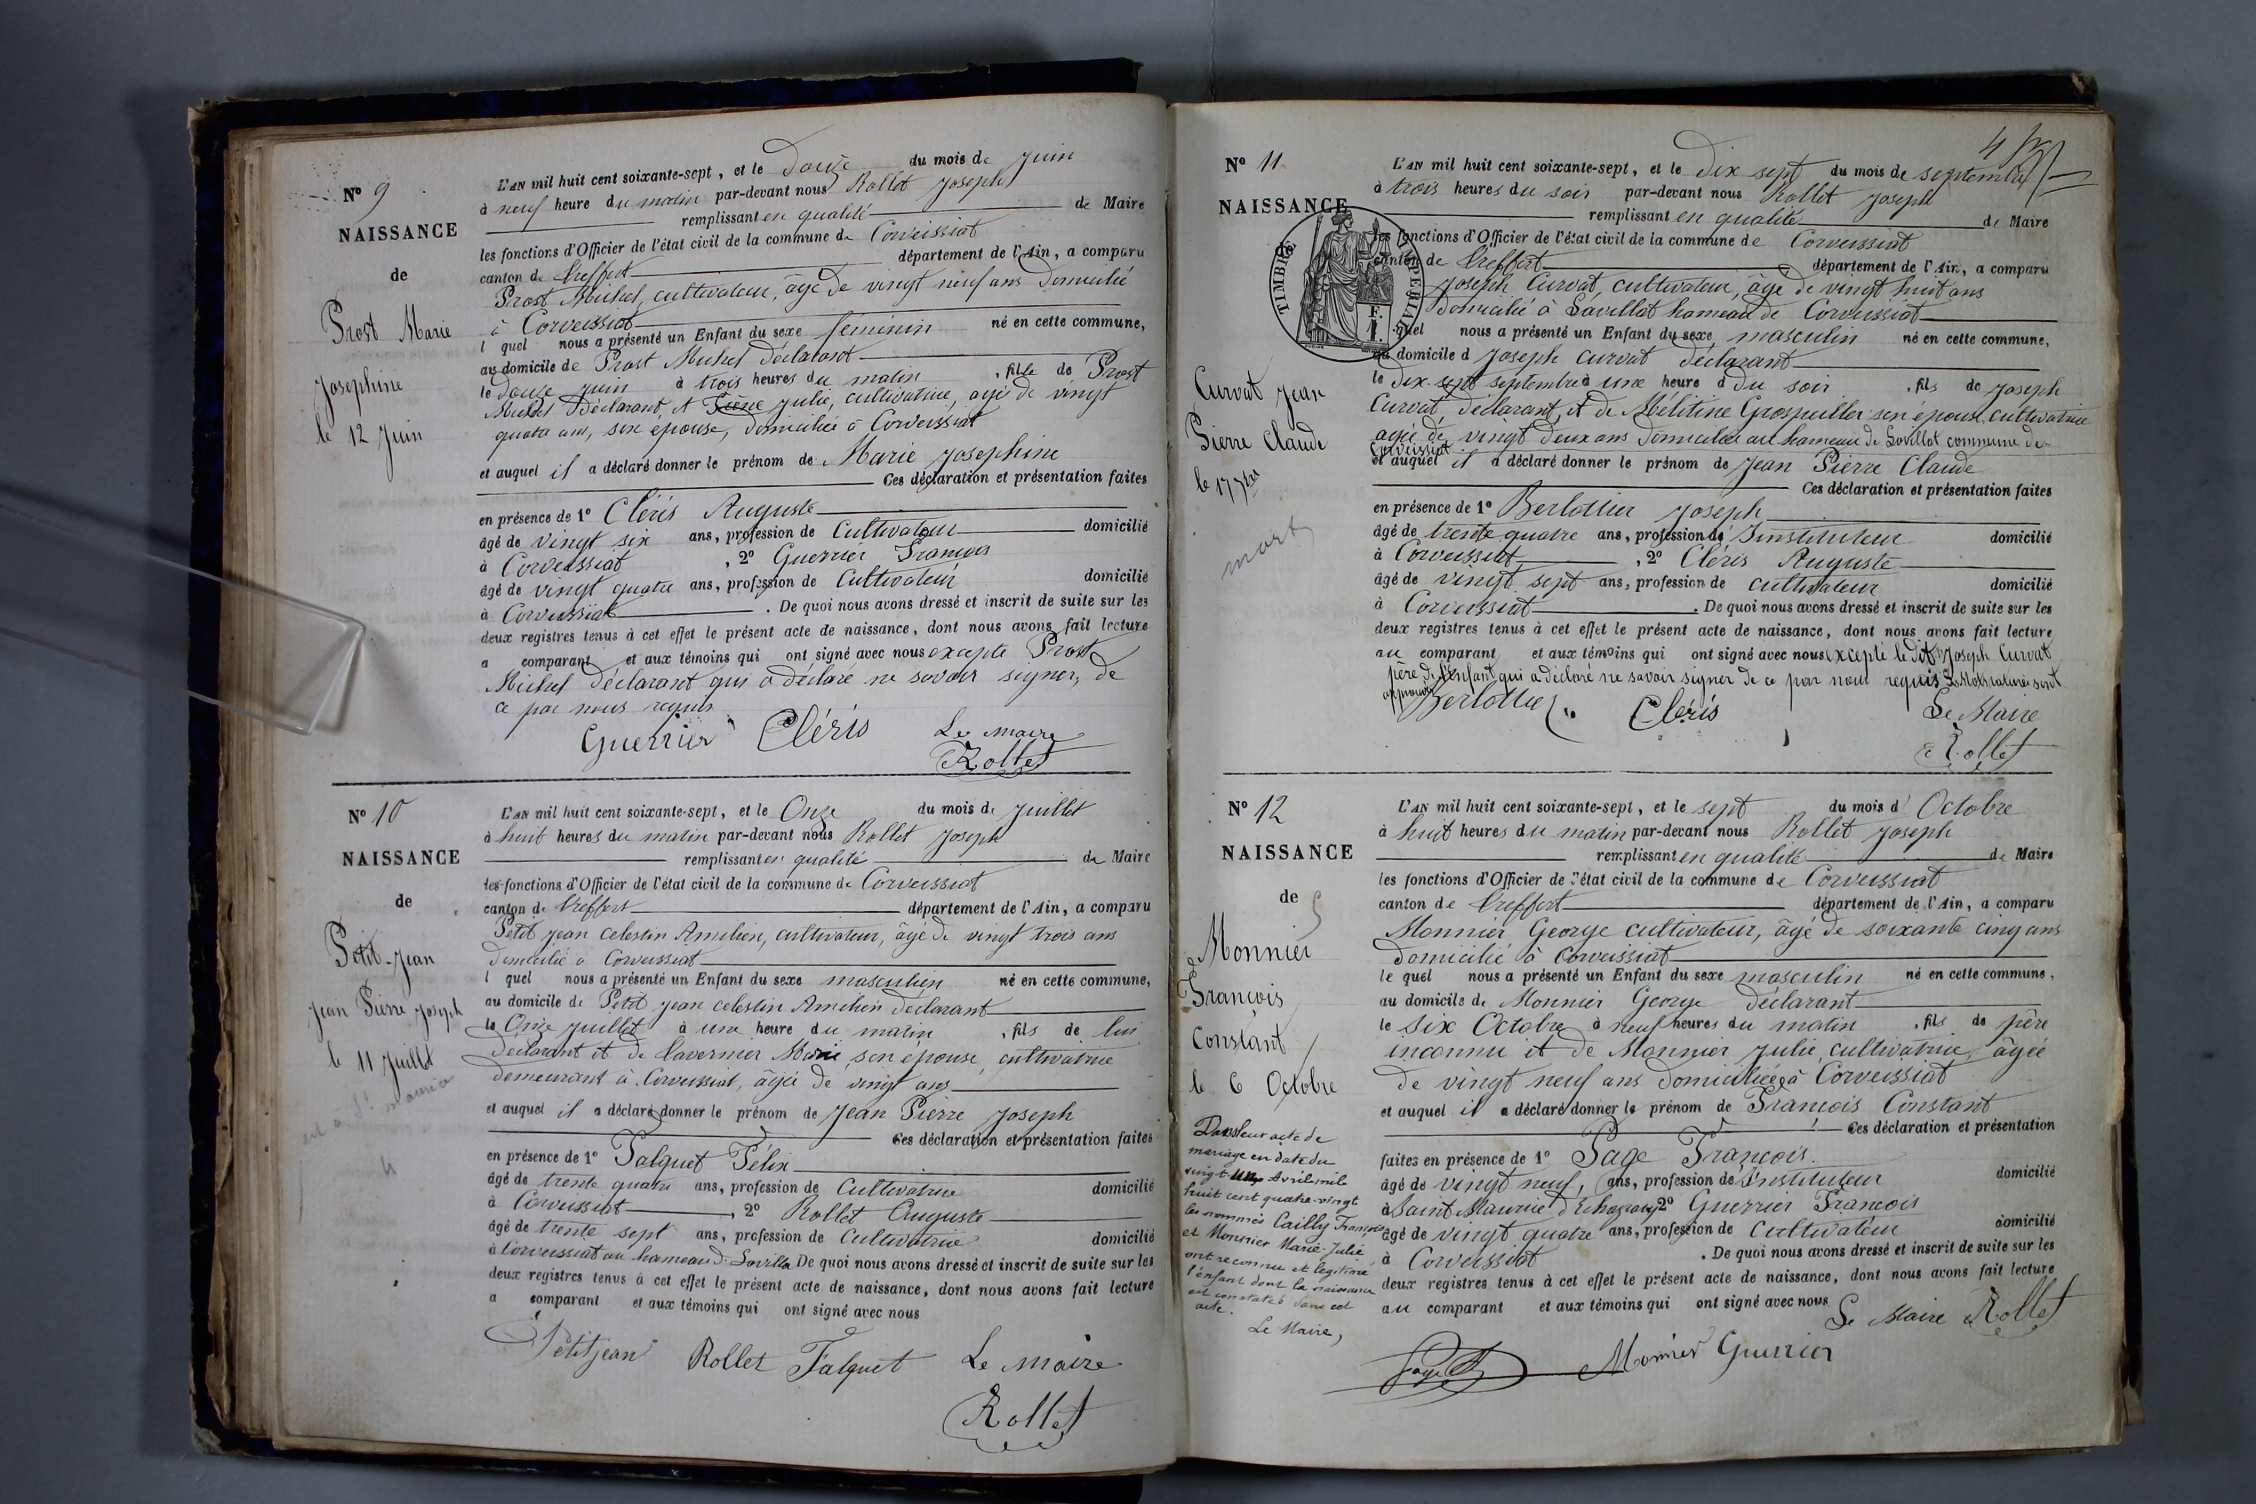 N° 9
NAISSANCE
de
Prost Marie
Josephine
le 12 Juin
L'AN mil huit cent soixante-sept, et le Douze du mois de Juin
à neuf heure du matin par-devant nous Rollet Joseph
remplissant en qualité de Maire
les fonctions d'Officier de l'état civil de la commune de Corveissiat
canton de Treffort département de l'Ain, a comparu
Prost Michel, cultivateur, âgé de vingt neuf ans Domicilié
à Corveissiat
l quel nous a présenté un Enfant du sexe féminin né en cette commune,
au domicile de Prost Michel Déclarant
le douze juin à trois heures du matin, fille de Prost
Michel Déclarant, et Julie, cultivatrice, agé de vingt
quatre ans, son epouse, domiciliée à Corveissiat
et auquel il a déclaré donner le prénom de Marie Josephine
Ces déclaration et présentation faites
en présence de 1° Cléris Auguste
âgé de vingt six ans, profession de Cultivateur domicilié
à Corveissiat, 2° Guerrier François
âgé de vingt quatre ans, profession de Cultivateur domicilié
à Corveissiat. De quoi nous avons dressé et inscrit de suite sur les
deux registres tenus à cet effet le présent acte de naissance, dont nous avons fait lecture
a comparant et aux témoins qui ont signé avec nous excepté Prost
Michel déclarant qui a déclaré ne savoir signer, de
ce par nous requis
Guerrier Cléris Le maire
Rollet
N° 10
NAISSANCE
de
Petit-Jean
Jean Pierre Joseph
le 11 Juillet
L'AN mil huit cent soixante-sept, et le Onze du mois de Juillet
à huit heures du matin par-devant nous Rollet Joseph
remplissant en qualité de Maire
les fonctions d'Officier de l'état civil de la commune de Corveissiat
canton de Treffort département de l'Ain, a comparu
Petit Jean Celestin Amelien, cultivateur, âgé de vingt trois ans
domicilié à Corveissiat
l quel nous a présenté un Enfant du sexe masculien né en cette commune,
au domicile de Petit Jean Celestin Amelien déclarant
le Onze Juillet à une heure du matin, fils de lui
déclarant et de Tavernier Marie son épouse, cultivatrice
demeurant à Corveissiat, âgée de vingt ans
et auquel il a déclaré donner le prénom de Jean Pierre Joseph
Ces déclaration et présentation faites
en présence de 1° Falquet Félix
âgé de trente quatre ans, profession de Cultivatrice domicilié
à Corveissiat, 2° Rollet Auguste
âgé de trente sept ans, profession de Cultivatrice domicilié
à Corveissiat au hameau de Savilla De quoi nous avons dressé et inscrit de suite sur les
deux registres tenus à cet effet le présent acte de naissance, dont nous avons fait lecture
a comparant et aux témoins qui ont signé avec nous
Petitjean Rollet Falquet Le maire
Rollet
N° 11
NAISSANCE
de
TIMBRE IMPERIAL
F.
Curvat Jean
Pierre Claude
le 17 7bre
mort
L'AN mil huit cent soixante-sept, et le Dix sept du mois de septembre
à trois heures du soir par-devant nous Rollet Joseph
remplissant en qualité de Maire
les fonctions d'Officier de l'état civil de la commune de Corveissiat
canton de Treffort département de l'Ain, a comparu
Joseph Curvat, cultivateur, âgé de vingt huit ans
domicilié à Savillat hameau de Corveissiat
quel nous a présenté un Enfant du sexe masculin né en cette commune,
au domicile d Joseph Curvat déclarant
le dix-sept septembre à une heure d du soir, fils de Joseph
Curvat, déclarant, et de Mélitine Grospuiller son épouse cultivatrice
agée de vingt deux ans domiciliée au hameau de Savillat commune de
Corveissiat
et auquel il a déclaré donner le prénom de Jean Pierre Claude
Ces déclaration et présentation faites
en présence de 1° Berlottier Joseph
âgé de trente quatre ans, profession de Jinstituteur domicilié
à Corveissiat, 2° Cléris Auguste
âgé de vingt sept ans, profession de cultivateur domicilié
à Corveissiat. De quoi nous avons dressé et inscrit de suite sur les
deux registres tenus à cet effet le présent acte de naissance, dont nous avons fait lecture
au comparant et aux témoins qui ont signé avec nous excepté le dit Joseph Curvat
père de l'enfant qui a déclaré ne savoir signer de ce par nous requis
Berlottier Cléris Le Maire
Rollet
N° 12
NAISSANCE
de
Monnier
François
Constant
le 6 Octobre
Dans leur acte de
mariage en date du
vingt un Avril mil
huit cent quatre-vingt
les nommés Cailly François
et Monnier Marie-Julie
ont reconnu et légitimé
l'enfant dont la naissance
est constatée dans cet
acte.
Le Maire,
L'AN mil huit cent soixante-sept, et le sept du mois d' Octobre
à huit heures du matin par-devant nous Rollet Joseph
remplissant en qualité de Maire
les fonctions d'Officier de l'état civil de la commune de Corveissiat
canton de Treffort département de l'Ain, a comparu
Monnier George cultivateur, âgé de soixante cinq ans
domicilié à Corveissiat
le quel nous a présenté un Enfant du sexe masculin né en cette commune,
au domicile de Monnier George déclarant
le six Octobre à neuf heures du matin, fils de père
inconnu et de Monnier Julie, cultivatrice, âgée
de vingt neuf ans domiciliée à Corveissiat
et auquel il a déclaré donner le prénom de François Constant
Ces déclaration et présentation
faites en présence de 1° Page François
âgé de vingt neuf, ans, profession de Jnstituteur domicilié
à Saint Maurice d'Echazeaux, 2° Guerrier François
âgé de vingt quatre ans, profession de Cultivateur domicilié
à Corveissiat. De quoi nous avons dressé et inscrit de suite sur les
deux registres tenus à cet effet le présent acte de naissance, dont nous avons fait lecture
au comparant et aux témoins qui ont signé avec nous
Le Maire Rollet
Page Monnier Guerrier